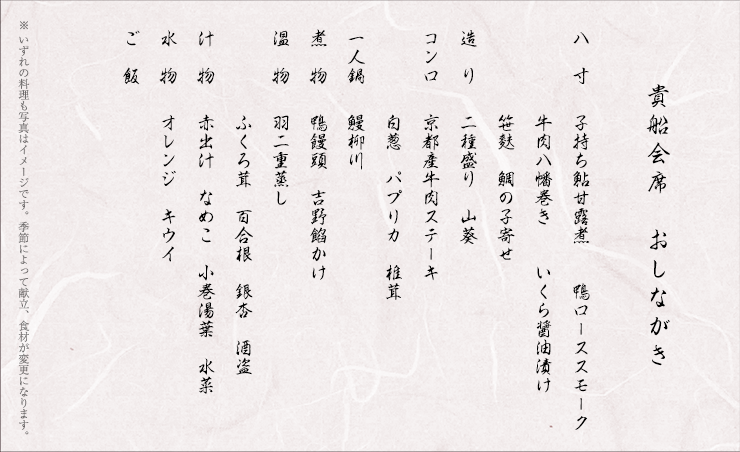 貴船会席　おしながき
八　寸　子持ち鮎甘露煮　鴨ローススモーク
牛肉八幡巻き　いくら醤油漬け
笹麩　鯛の子寄せ
造　り　二種盛り　山葵
コンロ　京都産牛肉ステーキ
白葱　パプリカ　椎茸
一人鍋　鰻柳川
煮　物　鴨饅頭　吉野餡かけ
温　物　羽二重蒸し
ふくろ茸　百合根　銀杏　酒盗
汁　物　赤出汁　なめこ　小巻湯葉　水菜
水　物　オレンジ　キウイ
ご　飯
※いずれの料理も写真はイメージです。季節によって献立、食材が変更になります。